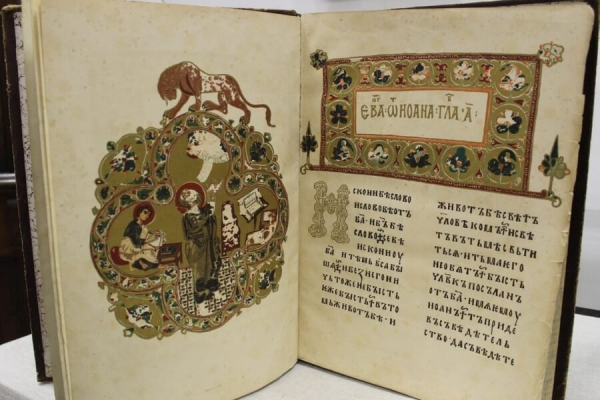 ЕВА·ѾИОАНА·ГЛА·А҃·
ИСКОНИБѢСЛОВО
ИСЛОВОБѢОТЪ
БА҃·ИБ҃ЪБѢ
СЛОВО·СЕБѢ
ИСКОНИОУ
БА҃·ИТѢМЬВЬСАБЫ
ШѦ·ИБЕЗНЕГОНИ
ЧЬТОЖЕНЕБЫСТЬ
ЕЖЕБЫСТЬ·ВЪТО
МЬЖИВОТЪБѢ·И
ЖИВОТЪБѢСВѢТЪ
ЧЛОВѢКОМЪ·ИСВѢ
ТЪВЪТЬМѢСВЬТИ
ТЬСѦ·ИТЬМАЕГО
НЕОБѦТЪ·БЫСТЬ
ЧЛВ҃КЪПОСЪЛАНЪ
ОТЪБА҃·ИМѦЕМОУ
ИОАНЪ·ТЪПРИДЕ
ВЪСЪВѢДѢТЕЛЬ
СТВО·ДАСЪВѢДѢТЕ